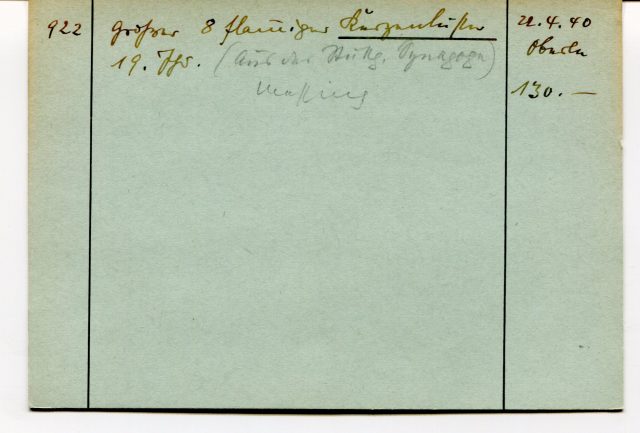 922
großer 8 flammiger Kerzenleuchter
19. Jhd. (Aus der Stuttg. Synagoge)
Messing
22.4.40
130.—